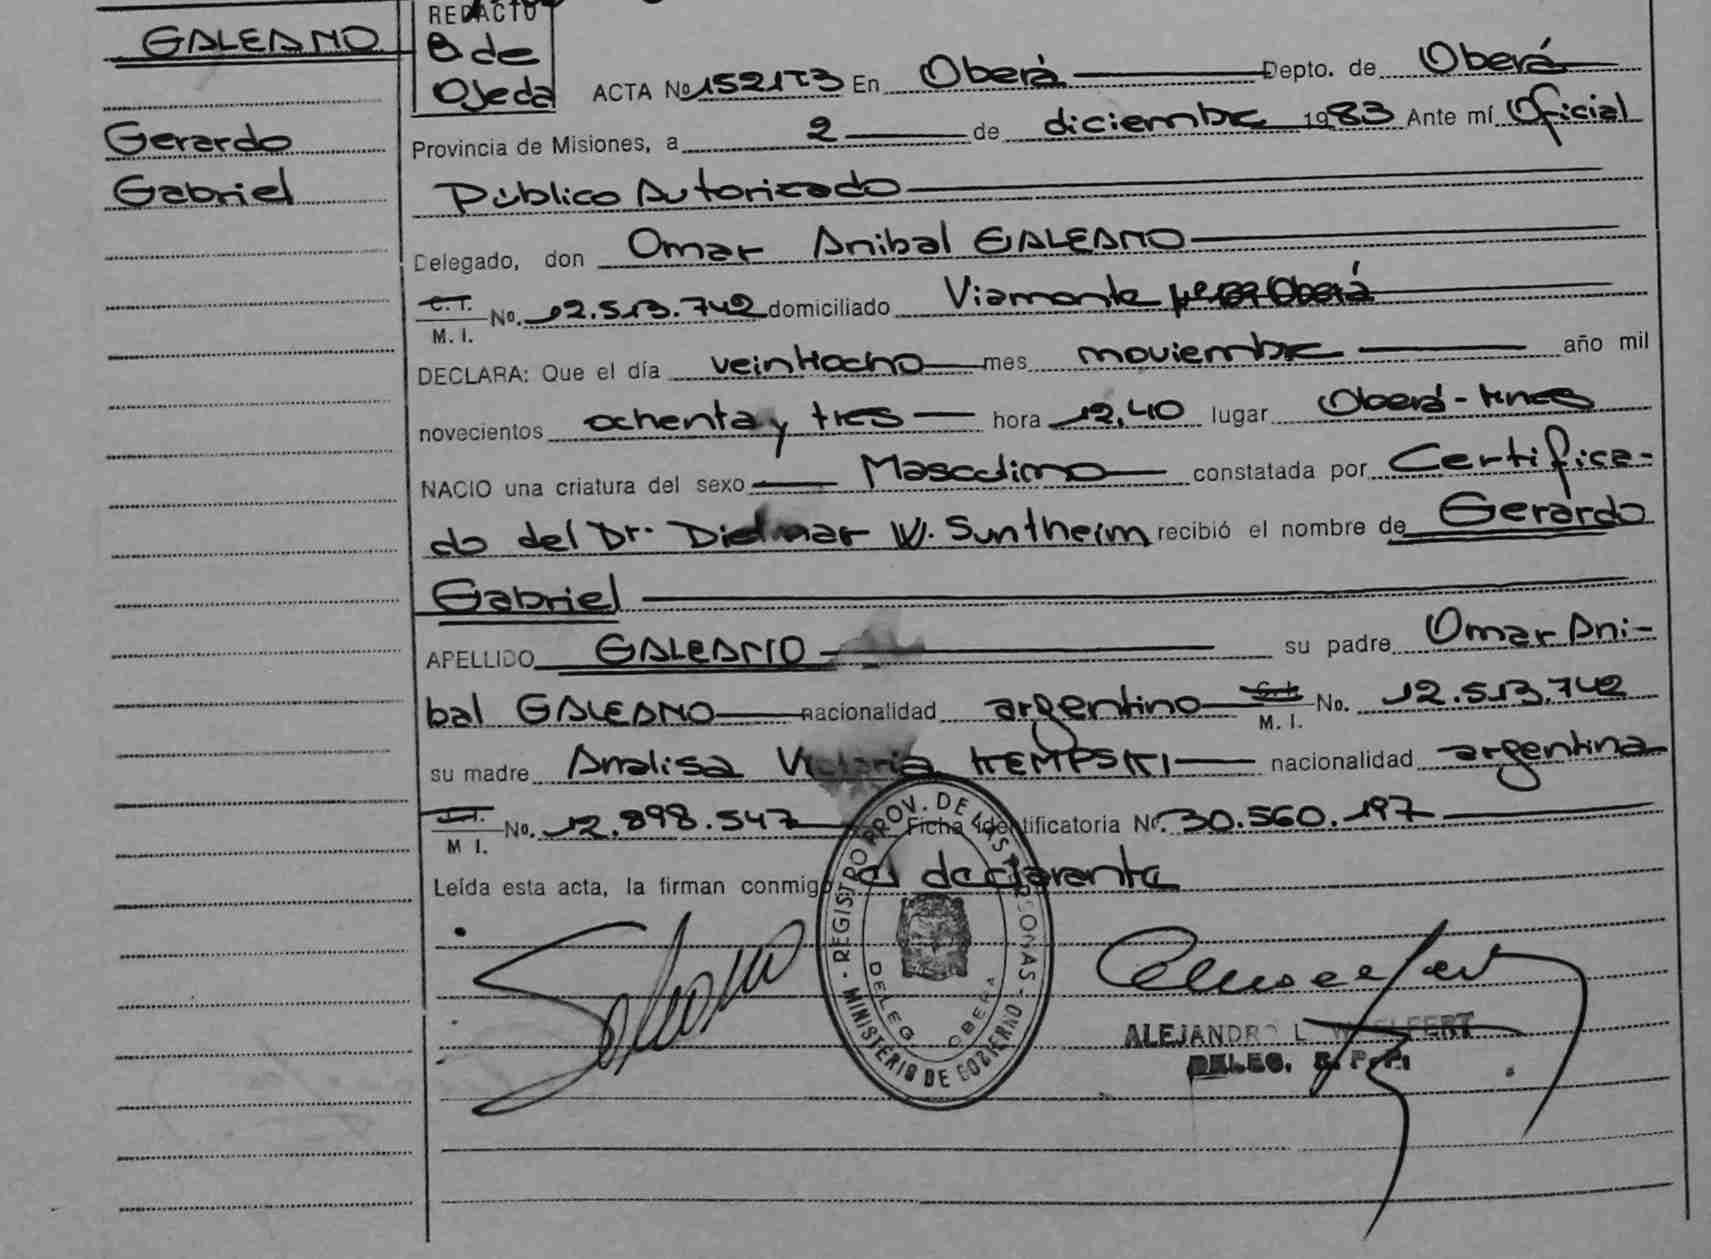 GALEANO
Gerardo
Gabriel
REDACTO
B de
Ojeda
ACTA No 1521T3 En Oberá Depto. de Oberá
Provincia de Misiones, a 2 de diciembre 1983 Ante mí Oficial
Público Autorizado
Delegado, don Omar Anibal GALEANO
C.I. M. I. No. 12.513.742 domiciliado Viamonte Oberá
DECLARA: Que el día veintiocho mes noviembre año mil
novecientos ochenta y tres hora 12,40 lugar Oberá - Mnes
NACIO una criatura del sexo Masculino constatada por Certifica-
do del Dr. Dietmar W. Suntheim recibió el nombre de Gerardo
Gabriel
APELLIDO GALEANO su padre Omar Ani-
bal GALEANO nacionalidad argentino C.I. M. I. No. 12.513.742
su madre Analisa Victoria KEMPSKI nacionalidad argentina
C.I. M I. No. 12.898.547 Ficha Identificatoria No. 30.560.197
Leída esta acta, la firman conmigo el declarante
REGISTRO PROV. DE LAS PERSONAS - MINISTERIO DE GOBIERNO -
DELEG. OBERA
ALEJANDRO L.
DELEG. R. P. P.